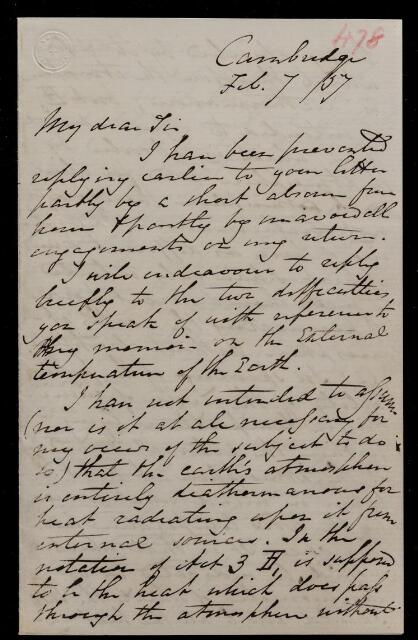 478
Cambridge
Feb. 7 /57
My dear Sir
I have been prevented
replying earlier to your letter
partly by a short absence from
home & partly by unavoidable
engagements on my return.
I will endeavour to reply
briefly to the two difficulties
you speak of with reference to
my memoir on the External
temperature of the Earth.
I have not intended to assume
(nor is it at all necessary for
my views of the subject to do
so) that the earth's atmosphere
is entirely diathermanous for
heat radiating upon it from
external sources. In the
notation of Art 3 is supposed
to be the heat which does pass
through the atmosphere without